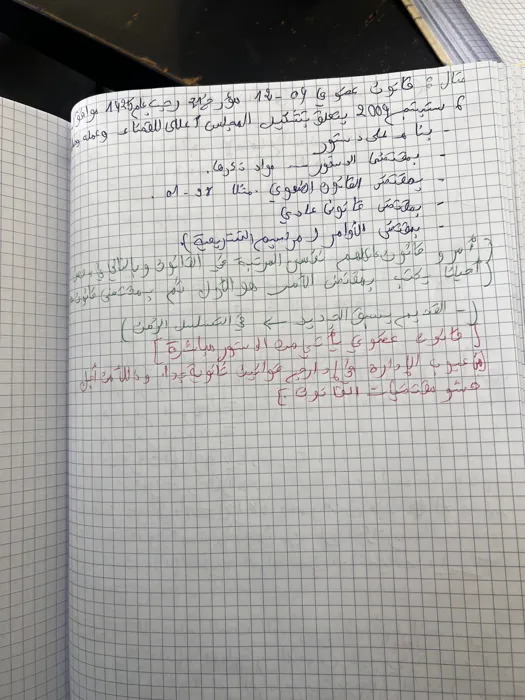 مثال : قانون عضوي 04 - 12 مؤرخ في 21 رجب عام 1425 موافق
6 سبتمبر 2004 يتعلق بتشكيل المجلس الأعلى للقضاء وعمله
- بناء على دستور
- بمقتضى الدستور — مواد تذكرها.
- بمقتضى القانون العضوي . مثلا 98 - 01 .
- بمقتضى قانون عادي
- بمقتضى الأوامر (مراسيم التشريعية)
[أمر و قانون كلاهم نفس المرتبة في القانون وبالتالي
[أحيانا يكتب بمقتضى الأمر هو الأول ثم بمقتضى قانون
(- القديم يسبق الجديد ← في التسلسل الزمن)
[قانون عضوي يأتي من الدستور مباشرة]
عيوب الإدارة في إدارج قوانين قانونية جدا،
مقتضيات القانون]